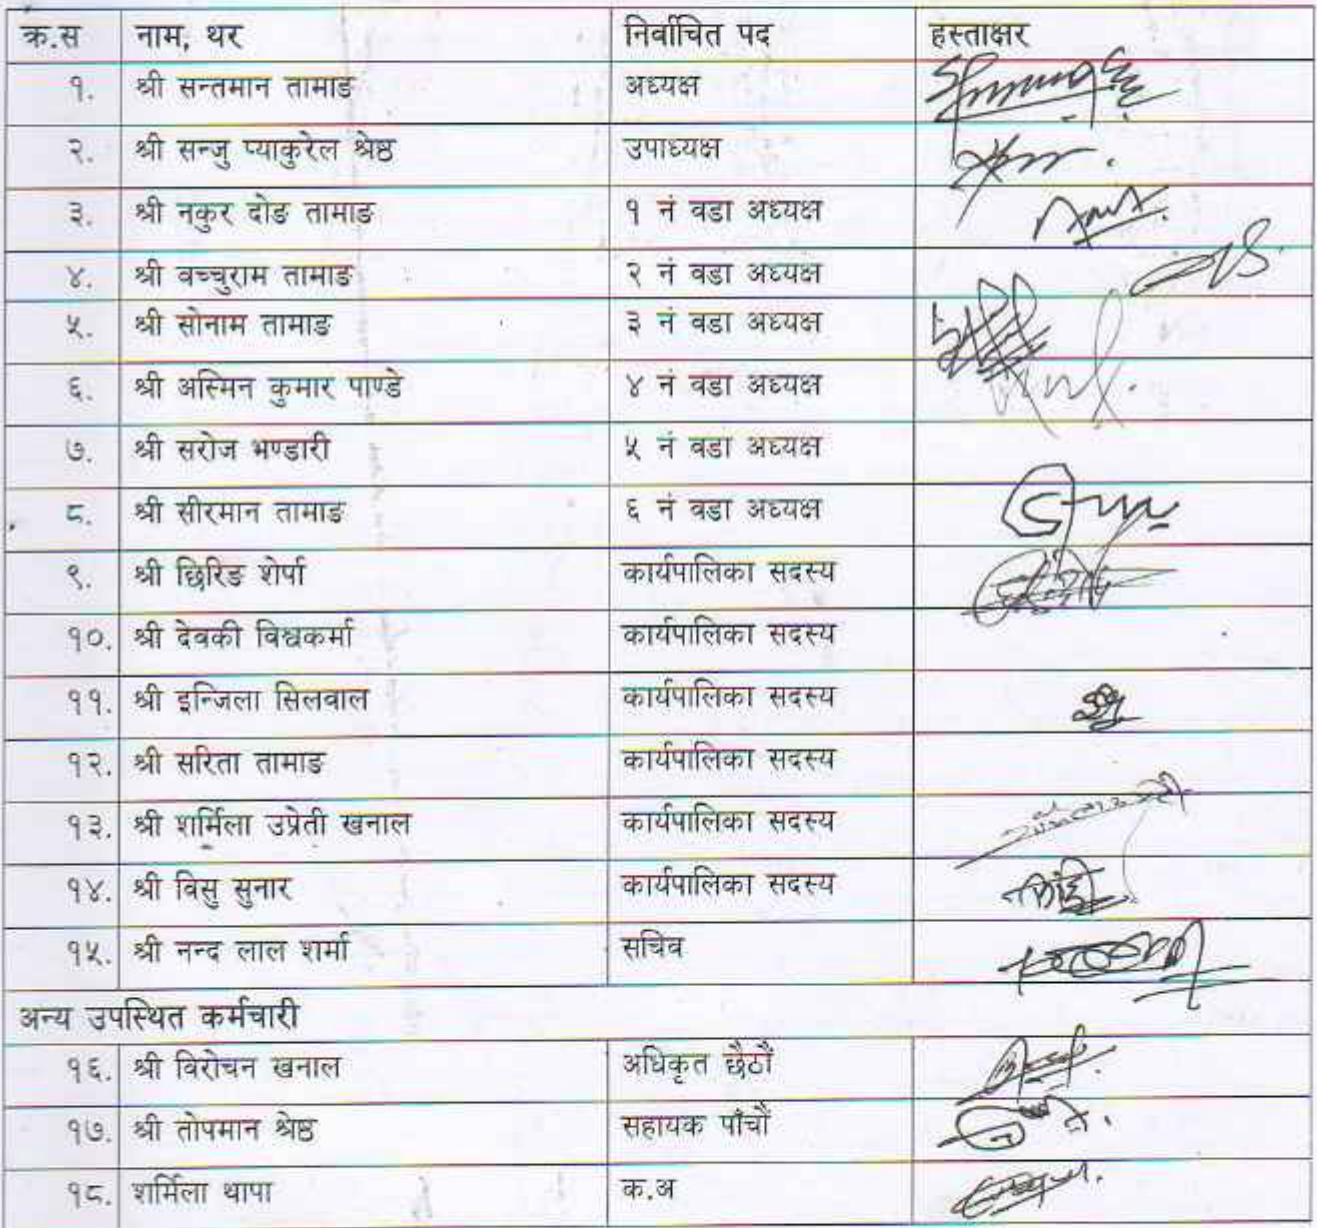 क्र.स नाम, थर निर्वाचित पद हस्ताक्षर
१. श्री सन्तमान तामाङ अध्यक्ष
२. श्री सन्जु प्याकुरेल श्रेष्ठ उपाध्यक्ष
३. श्री नकुर दोङ तामाङ १ नं वडा अध्यक्ष
४. श्री वच्चुराम तामाङ २ नं वडा अध्यक्ष
५. श्री सोनाम तामाङ ३ नं वडा अध्यक्ष
६. श्री अस्मिन कुमार पाण्डे ४ नं वडा अध्यक्ष
७. श्री सरोज भण्डारी ५ नं वडा अध्यक्ष
८. श्री सीरमान तामाङ ६ नं वडा अध्यक्ष
९. श्री छिरिङ शेर्पा कार्यपालिका सदस्य
१०. श्री देवकी विश्वकर्मा कार्यपालिका सदस्य
११. श्री इन्जिला सिलवाल कार्यपालिका सदस्य
१२. श्री सरिता तामाङ कार्यपालिका सदस्य
१३. श्री शर्मिला उप्रेती खनाल कार्यपालिका सदस्य
१४. श्री विसु सुनार कार्यपालिका सदस्य
१५. श्री नन्द लाल शर्मा सचिव
अन्य उपस्थित कर्मचारी
१६. श्री विरोचन खनाल अधिकृत छैठौं
१७. श्री तोपमान श्रेष्ठ सहायक पाँचौं
१८. शर्मिला थापा क.अ